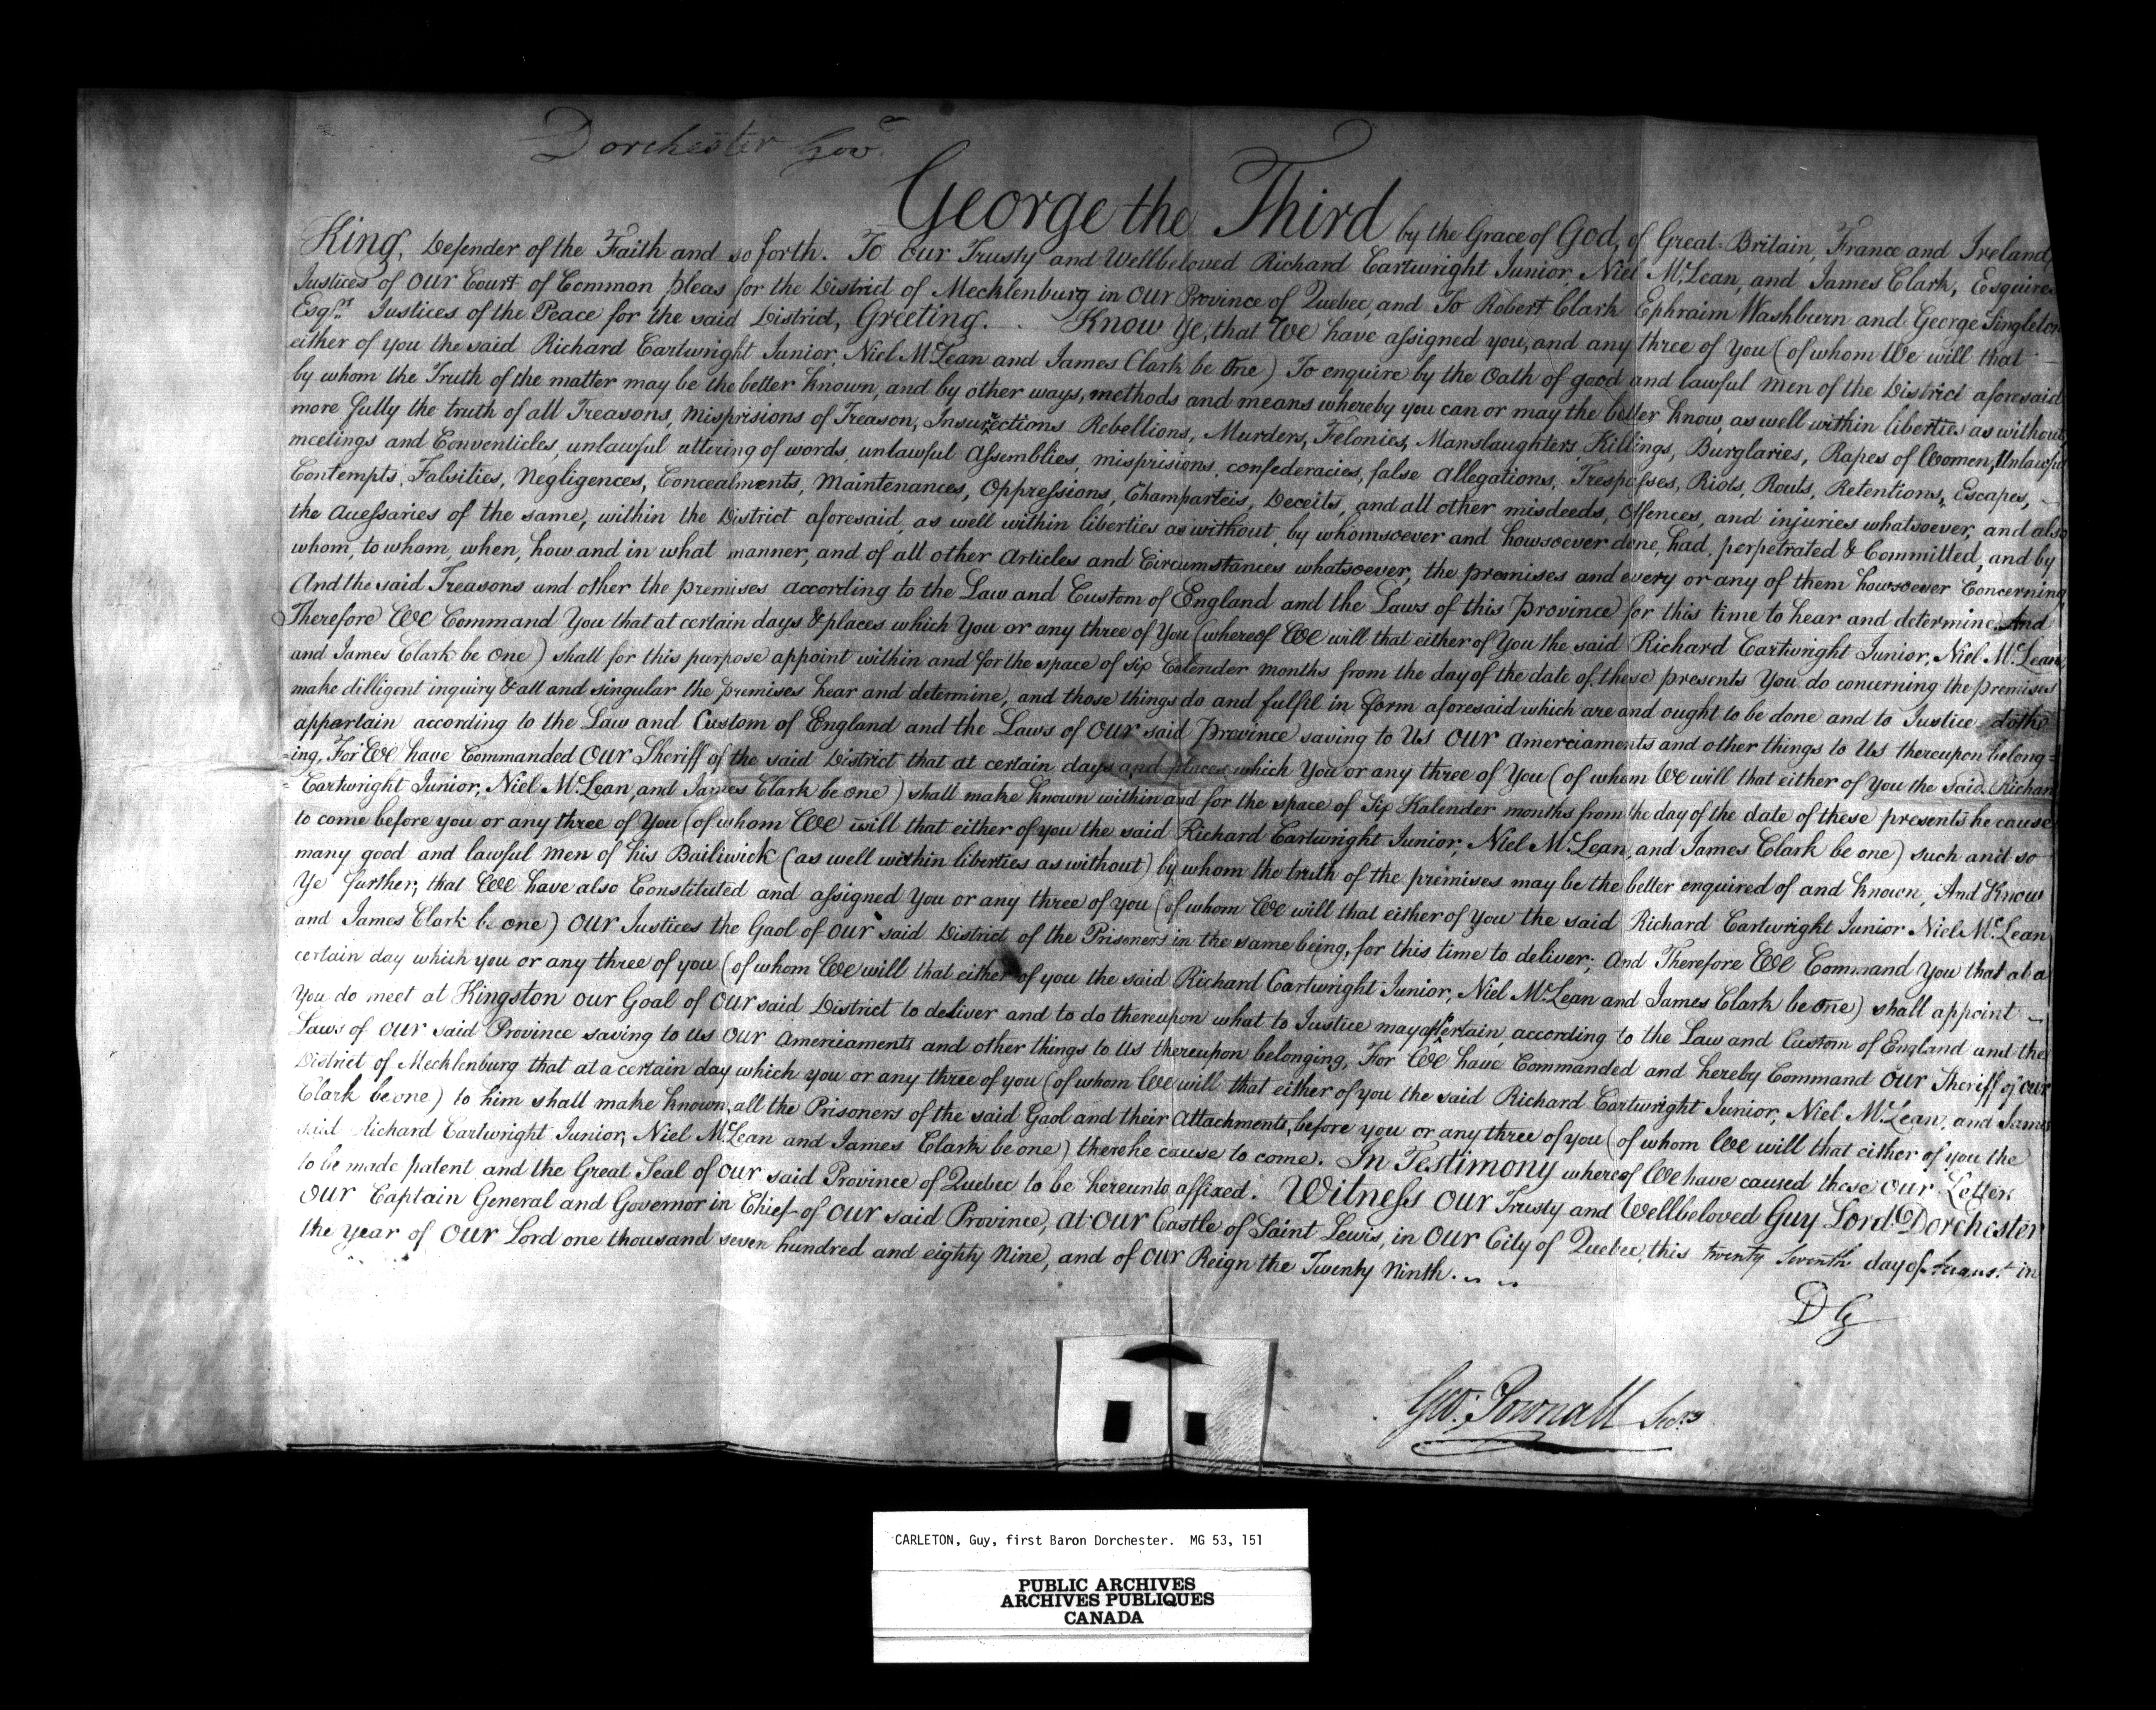 Dorchester Govr.
George the Third by the Grace of God, of Great-Britain, France and Ireland,
King, Defender of the Faith and so forth. To our Trusty and Wellbeloved Richard Cartwright Junior, Niel McLean, and James Clark, Esquires
Justices of our Court of Common pleas for the District of Mecklenburg in our Province of Quebec, and To Robert Clark Ephraim Washburn and George Singleton
Esqrs. Justices of the Peace for the said District, Greeting. Know ye, that We have assigned you, and any three of you (of whom We will that
either of you the said Richard Cartwright Junior, Niel McLean and James Clark be One) To enquire by the Oath of good and lawful men of the District aforesaid
by whom the Truth of the matter may be the better known, and by other ways, methods and means whereby you can or may the better know, as well within liberties as without,
more fully the truth of all Treasons, misprisions of Treason, Insurrections Rebellions, Murders, Felonies, Manslaughters, Killings, Burglaries, Rapes of Women, Unlawful
meetings and Conventicles, unlawful uttering of words, unlawful Assemblies, misprisions, confederacies, false allegations, Trespasses, Riots, Routs, Retentions, Escapes,
Contempts, Falsities, Negligences, Concealments, Maintenances, Oppressions, Champarteis, Deceits, and all other misdeeds, Offences, and injuries whatsoever, and also
the Accessaries of the same, within the District aforesaid, as well within liberties as without, by whomsoever and howsoever done, had, perpetrated & Committed, and by
whom, to whom, when, how and in what manner, and of all other Articles and Circumstances whatsoever, the premises and every or any of them howsoever Concerning
And the said Treasons and other the premises according to the Law and Custom of England and the Laws of this Province for this time to hear and determine. And
Therefore We Command You that at certain days & places which You or any three of You (whereof We will that either of You the said Richard Cartwright Junior, Niel McLean,
and James Clark be One) shall for this purpose appoint within and for the space of six Calender months from the day of the date of these presents You do concerning the premises
make dilligent inquiry & all and singular the premises hear and determine, and those things do and fulfil in form aforesaid which are and ought to be done and to Justice doth
appertain according to the Law and Custom of England and the Laws of our said Province saving to Us our amerciaments and other things to Us thereupon belong=
=ing, For We have Commanded our Sheriff of the said District that at certain days and places which You or any three of You (of whom We will that either of You the said Richard
Cartwright Junior, Niel McLean, and James Clark be one) shall make known within and for the space of Six Kalender months from the day of the date of these presents he cause
to come before you or any three of You (of whom We will that either of you the said Richard Cartwright Junior, Niel McLean, and James Clark be one) such and so
many good and lawful men of his Bailiwick (as well within liberties as without) by whom the truth of the premises may be the better enquired of and known, And Know
Ye further, that We have also Constituted and assigned You or any three of you (of whom We will that either of you the said Richard Cartwright Junior Niel McLean
and James Clark be one) our Justices the Gaol of our said District of the Prisoners in the same being, for this time to deliver; And Therefore We Command You that at a
certain day which you or any three of you (of whom We will that either of you the said Richard Cartwright Junior, Niel McLean and James Clark be One) shall appoint
You do meet at Kingston our Goal of our said District to deliver and to do thereupon what to Justice may appertain, according to the Law and Custom of England and the
Laws of our said Province saving to us our amerciaments and other things to Us thereupon belonging, For We have Commanded and hereby Command our Sheriff of our
District of Mecklenburg that at a certain day which you or any three of you (of whom We will that either of you the said Richard Cartwright Junior, Niel McLean, and James
Clark be one) to him shall make known, all the Prisoners of the said Gaol and their Attachments, before you or any three of you (of whom We will that either of you the
said Richard Cartwright Junior, Niel McLean and James Clark be one) there he cause to come. In Testimony whereof We have caused these our Letters
to be made patent and the Great Seal of our said Province of Quebec to be hereunto affixed. Witness our Trusty and Wellbeloved Guy Lord Dorchester
our Captain General and Governor in Chief of our said Province, at our Castle of Saint Lewis, in our City of Quebec, this twenty Seventh day of August in
the year of our Lord one thousand seven hundred and eighty Nine, and of our Reign the Twenty Ninth.
DG
Geo: Pownall Secry
CARLETON, Guy, first Baron Dorchester. MG 53, 151
PUBLIC ARCHIVES
ARCHIVES PUBLIQUES
CANADA